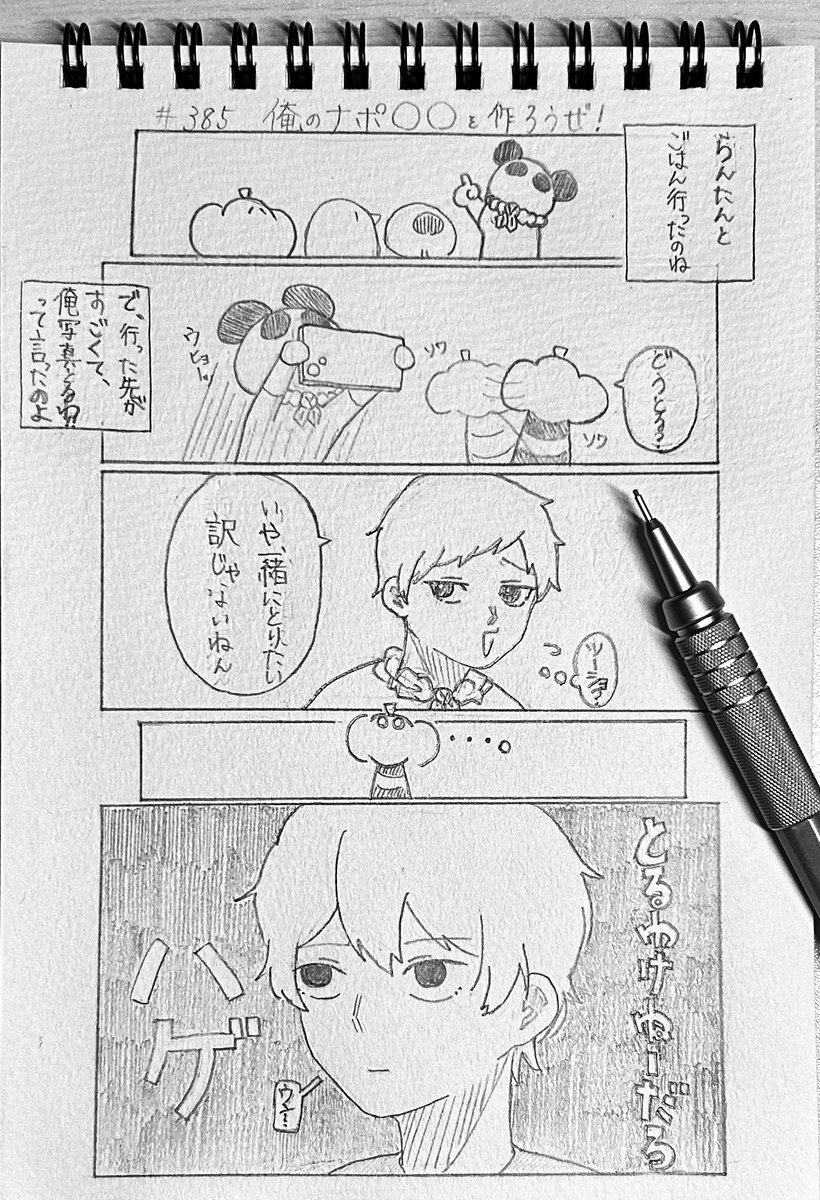 #385 俺のナポ〇〇を作ろうぜ!
らんたんと
ごはん行ったのね
で、行った先が
すごくて、
俺写真とるわ!!
って言ったのよ
ウヒョーッ
ソワ
ソワ
どうとる?
いや、一緒にとりたい
訳じゃないねん
ツーショ?
・・・。
とるわけねーだろ
ハゲ